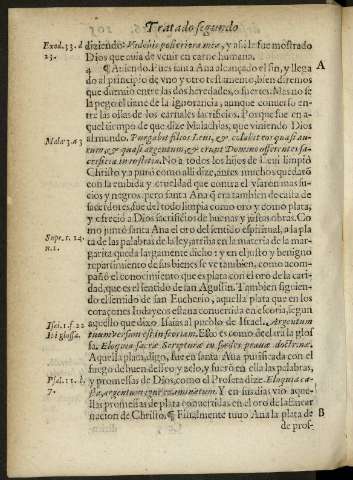 Tratado segundo
Exod.33.d
23.
diziendo: Videbis posteriora mea, y assi le fue mostrado
Dios que auia de venir en carne humano.
A
4 ¶ Auiendo Pues santa Ana alcançado el fin, y llega
do al principio de vno y otro testamento, bien diremos
que durmio entre las dos heredades, o suertes. Mas no se
le pego el tizne de la ignorancia, aunque conuerso en-
tre las ollas de los carnales sacrificios. Porque fue en a-
quel tiempo de que dize Malachias, que viniendo Dios
Mala.3.a3
al mundo. Purgabit filios Leui, & colabit eos quasi au-
rum, & quasi argentum, & erunt Domino offerentes sa-
crificia in iustitia. No a todos los hijos de Leui limpiò
Christo y a purò como alli dize, antes muchos quedarõ
con la embidia y crueldad que contra el vsaron mas su-
zios y negros. pero santa Ana q̃ era tambien de casta de
sacerdotes, fue del todo limpia como oro y como plata,
y ofreciò a Dios sacrificios de buenas y justas obras. Co
mo juntò santa Ana el oro del sentido espiritual, a la pla
Supr.1.24.
n.1.
ta de las palabras de la ley, arriba en la materia de la mar-
garita queda largamente dicho: y en el justo y benigno
repartimiento de sus bienes se ve tambien, como acom-
pañò el conocimiento que es plata con el oro de la cari-
dad, que es el sentido de san Agustin. Tambien siguien-
do el sentido de san Eucherio, aquella plata que en los
coraçones Iudayeos estaua conuertida en escoria, segun
Isai.1.f.22
Ibi glossa.
aquello que dixo Isaias al pueblo de Israel, Argentum
tuum versum est in scoriam. Esto es como declara la glos
sa. Eloquia sacrae Scripturae in foeces prauae doctrinae.
Aquella plata, digo, fue en santa Ana purificada con el
fuego de buen desseo y zelo, y fueron en ella las palabras,
Psal.11.b.
7.
y promessas de Dios, como el Profeta dize. Eloquia ca-
sta, argentum igne examinatum. Y en sus dias vio aque-
llas promessas de plata conuertidas en el oro de la Encar
nacion de Christo. ¶ Finalmente tuuo Ana la plata de
B
de prof-